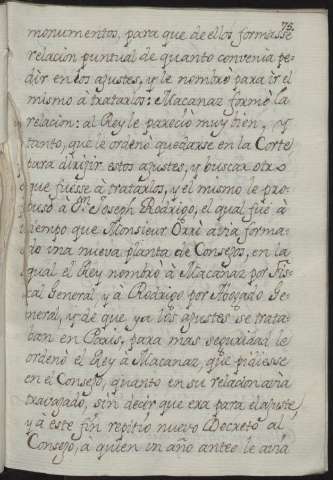 75.
monumentos, para que de ellos formasse
relacion puntual de quanto convenia pe-
dir en los ajustes, y le nombrò para ir el
mismo à tratarlos: Macanaz formò la
relacion: al Rey le pareciò muy bien, y
tanto, que le ordenò quedarse en la Corte
para dirigir estos ajustes, y buscar otro
que fuesse à tratarlos, y el mismo le pro-
puso à Dn. Joseph Rodrigo, el qual fue à
tiempo que Monsieur Orri avia forma-
do una nueva planta de Consejos, en la
qual el Rey nombrò à Macanaz por Fis-
cal General, y à Rodrigo por Abogado Ge-
neral, y de que ya los ajustes se trata-
ban en Paris, para mas seguridad le
ordenò el Rey à Macanaz, que pidiesse
en el Consejo, quanto en su relacion avia
travajado, sin decir que era para el ajuste,
y à este fin repitiò nuevo Decreto al
Consejo, à quien un año antes le avia